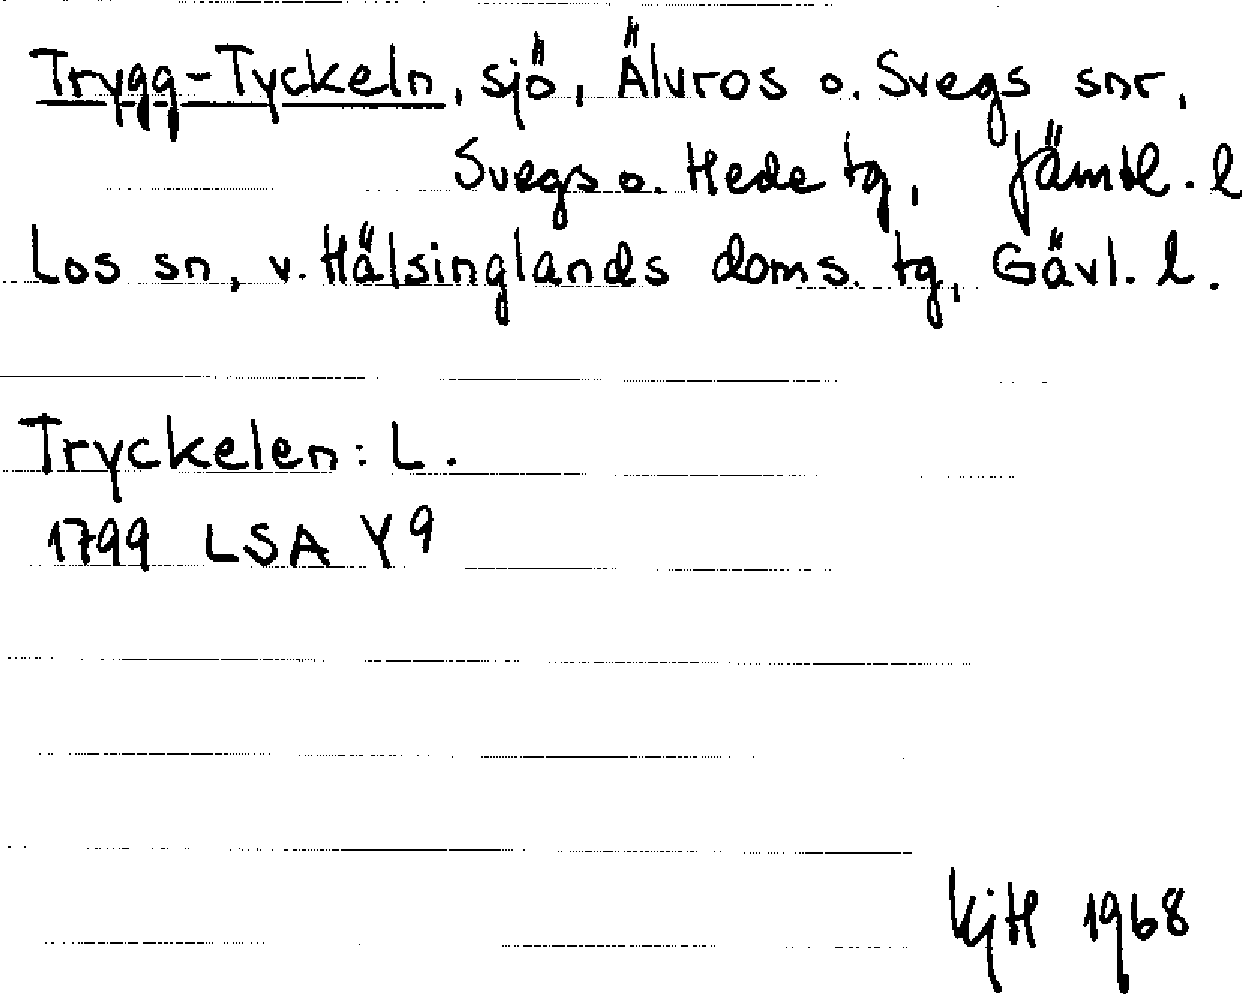 Trygg-Tyckeln, sjö, Älvros o. Svegs snr,
Svegs o. Hede tg, Jämtl. l
Los sn, v. Hälsinglands doms. tg, Gävl. l.
Tryckelen: L.
1799 LSA Y9
KjH 1968